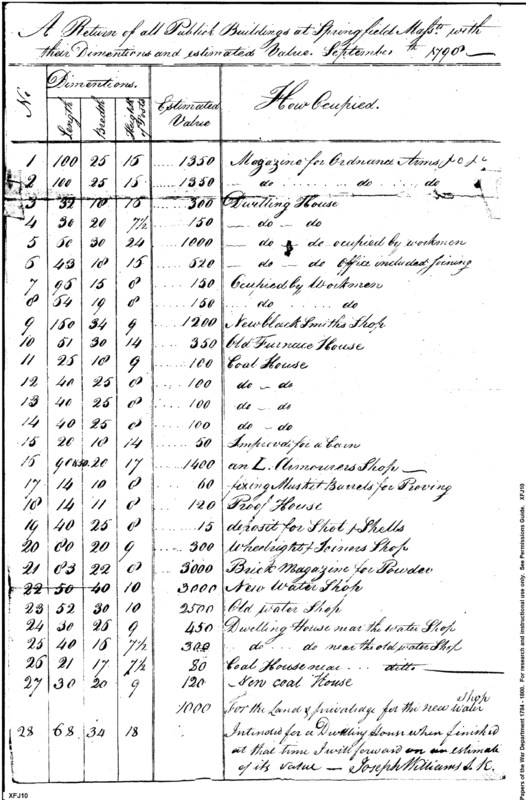 A Return of all Publick Buildings at Springfield Massts. with
their Dimentions and estimated Value. September th 1798 —
No Dimentions. Estimated Value How Ocupied.
Length Bredth Height of Posts
1 100 25 15 .... 1350 Magazine for Ordnance Arms &c &c
2 100 25 15 .... 1350 do ... do ... do
3 32 18 15 .... 300 Dwelling House
4 30 20 7½ .... 150 — do — do
5 60 30 24 .... 1000 — do — do ocupied by workmen
6 43 18 15 .... 520 — do — do Office included Joining
7 95 15 8 .... 150 Ocupied by Workmen
8 54 19 8 .... 150 do ... do
9 150 34 9 .... 1200 New black Smiths Shop
10 51 30 14 .... 350 Old Furnace House
11 25 18 9 .... 100 Coal House
12 40 25 8 .... 100 do — do
13 40 25 8 .... 100 do — do
14 40 25 8 .... 100 do — do
15 20 18 14 .... 50 Improvd for a Barn
16 90 & 50 20 17 1400 an L. Armourers Shop —
17 14 10 8 60 fixing Musket Barrels for Proving
18 14 11 8 120 Proof House
19 40 25 8 15 deposit for Shot & Shells
20 80 20 9 .... 300 Wheelright & Joiners Shop
21 83 22 8 3000 Brick Magazine for Powder
22 50 40 10 3000 New Water Shop
23 52 30 10 2500 Old water Shop
24 30 25 9 450 Dwelling House near the water Shop
25 40 16 7½ 300 do ... do near the old water Shop
26 21 17 7½ 80 Coal House near ... ditto —
27 30 20 9 120 New coal House
1000 For the Land & priviledge for the new water Shop
28 68 34 18 Intended for a Dwelling House when finished
at that time I will forward an estimate
of its value — Joseph Williams S. K.
XFJ10
Papers of the War Department 1784 - 1800. For research and instructional use only. See Permissions Guide. XFJ10